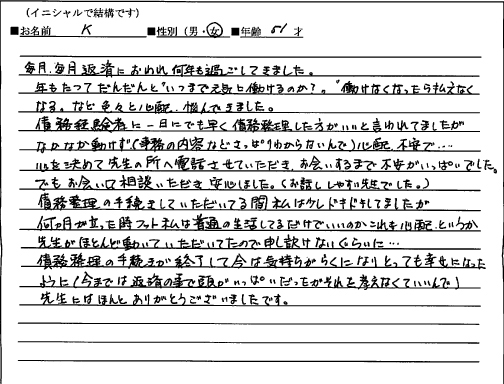 (イニシャルで結構です)
■お名前 K ■性別(男・女)■年齢 51 才
毎月、毎月返済におわれ何年も過ごしてきました。
年もたってだんだんと"いつまで元気に働けるのか?。"働けなくなったら払えなく
なる。など色々と心配、悩んできました。
債務経験者に一日にでも早く債務整理した方がいいと言われてましたが
なかなか動けず(事務の内容などさっぱりわからないんで)心配、不安で…
心を決めて先生の所へ電話させていただき、お会いするまで不安がいっぱいでした。
でもお会いして相談いただき安心しました。(お話ししやすい先生でした。)
債務整理の手続きしていただいてる間私はケレドキドキしてましたが
何ヵ月が立った時フット私は普通の生活してるだけでいいのかこれも心配というか
先生がほとんど動いていただいてたので申し訳けないぐらいに…
債務整理の手続きが終了して今は気持ちがらくになりとっても幸せになった
ように(今までは返済の事で頭がいっぱいだったがそれを考えなくていいんで)
先生にはほんとありがとうございましたです。